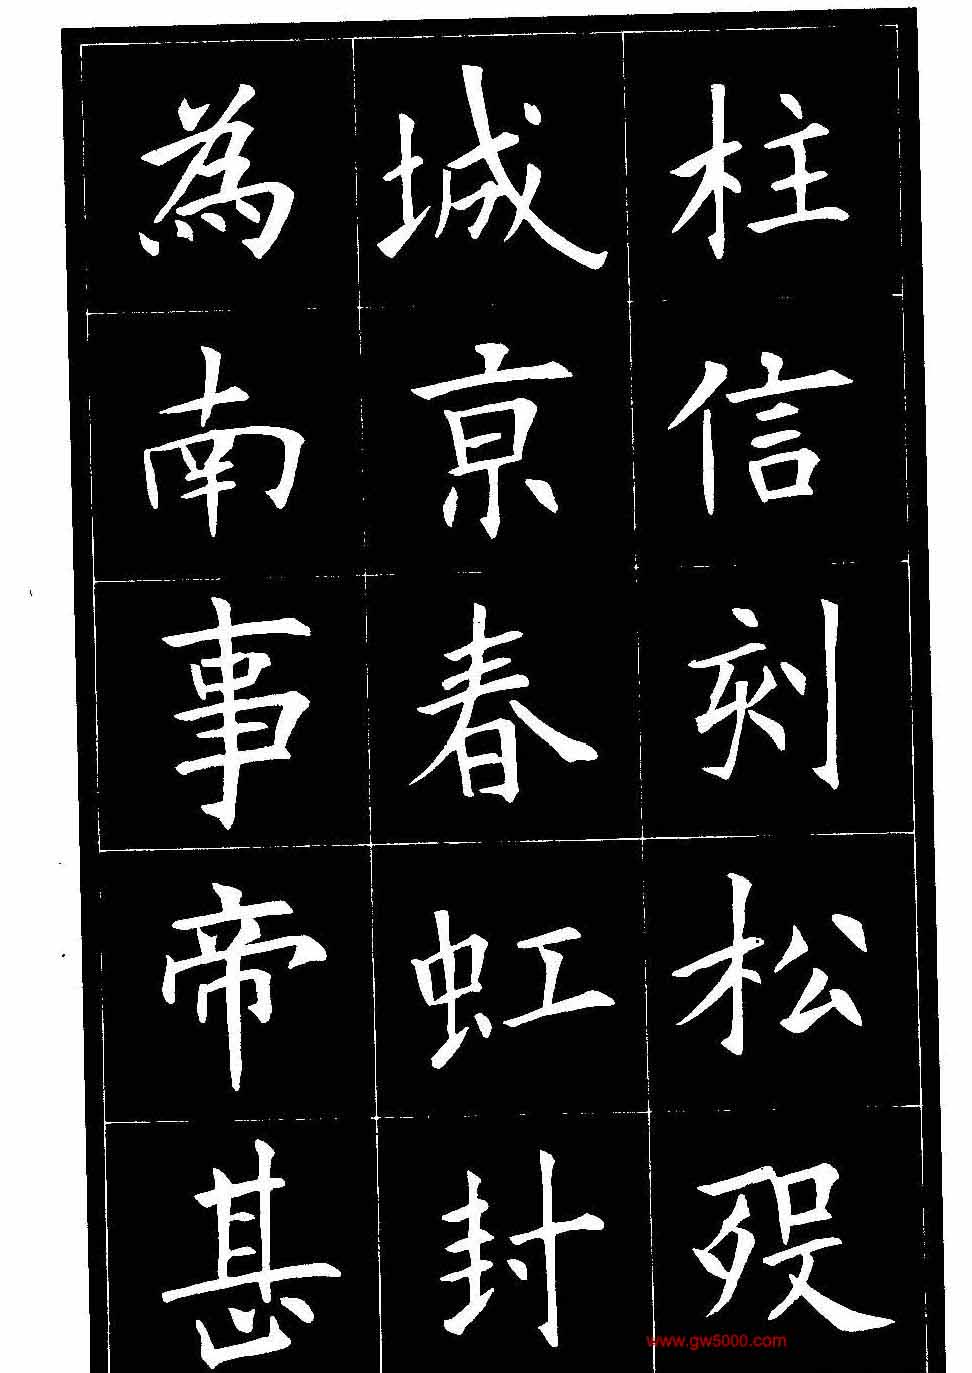 柱信刻松歿
城京春虹封
為南事帝甚
www.gw5000.com